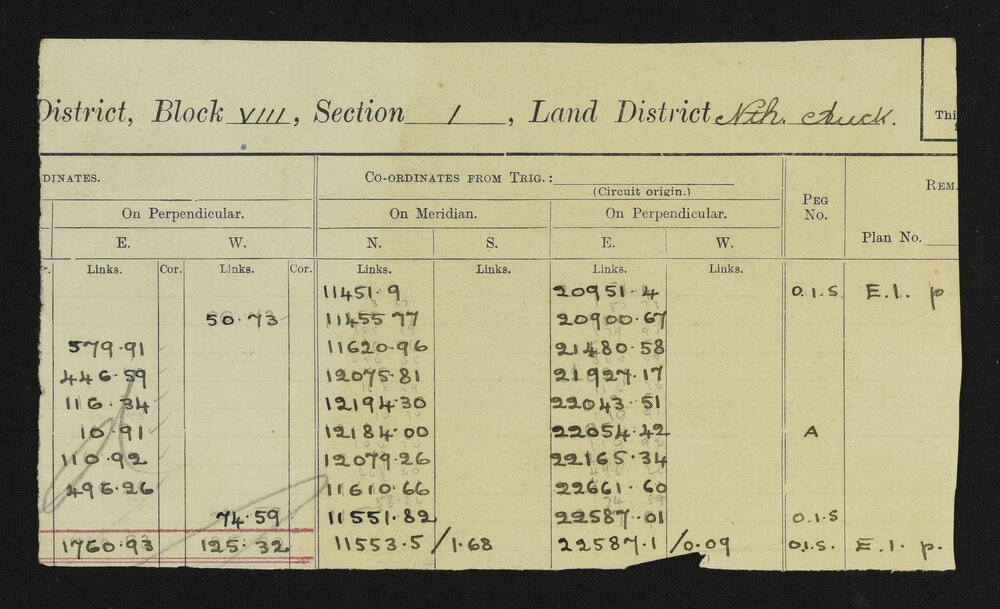 District, Block VIII, Section 1, Land District Nth. Auck.
Thi
DINATES.
CO-ORDINATES FROM TRIG.:
(Circuit origin.)
PEG No.
REM
On Perpendicular.
On Meridian.
On Perpendicular.
Plan No.
E. W. N. S. E. W.
r. Links. Cor. Links. Cor. Links. Links. Links. Links.
11451.9 20951.4 O.I.S. E.I. p
50.73 11455 77 20900.67
579.91 11620.96 21480.58
446.59 12075.81 21927.17
116.34 12194.30 22043.51
10.91 12184.00 22054.42 A
110.92 12079.26 22165.34
496.26 11610.66 22661.60
74.59 11551.82 22587.01 O.I.S
1760.93 125.32 11553.5 /1.68 22587.1 /0.09 O.I.S. E.I. p.